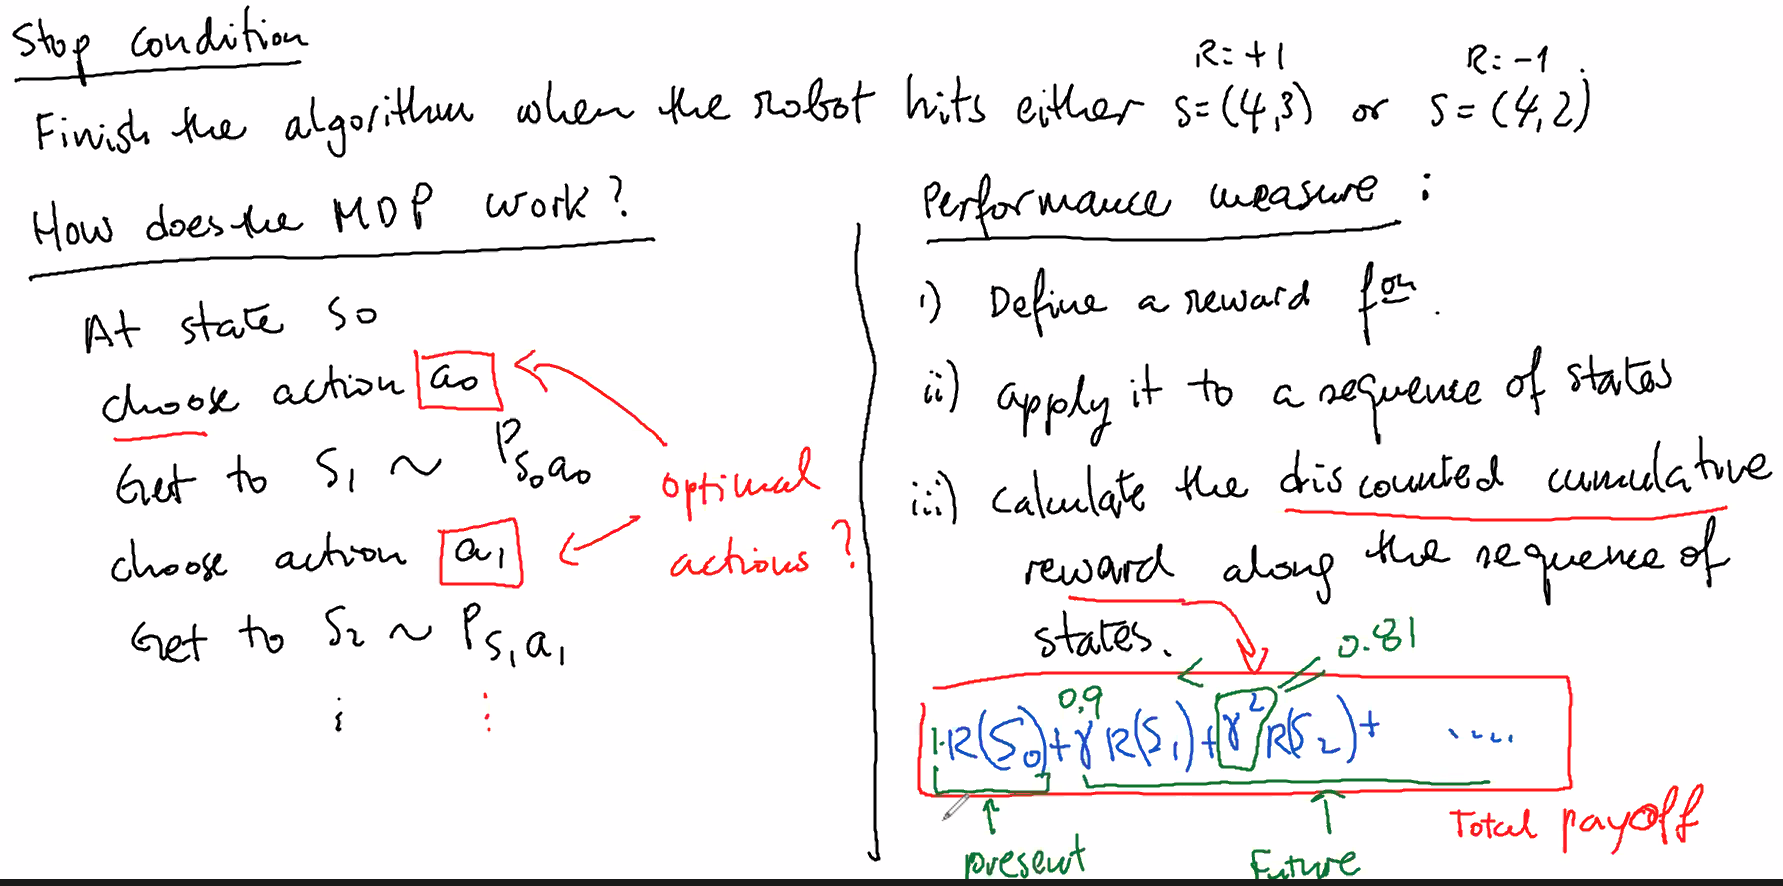 Stop condition
R=+1 R=-1
Finish the algorithm when the robot hits either S=(4,3) or S=(4,2)
How does the MDP work?
At state S0
choose action a0
Get to S1 ~ PS0a0
choose action a1
Get to S2 ~ PS1a1
optimal
actions?
Performance measure:
i) Define a reward fon.
ii) apply it to a sequence of states
iii) calculate the discounted cumulative
reward along the sequence of
states.
0.81
0.9
1·R(S0)+γR(S1)+γ²R(S2)+ .....
Total payoff
present Future